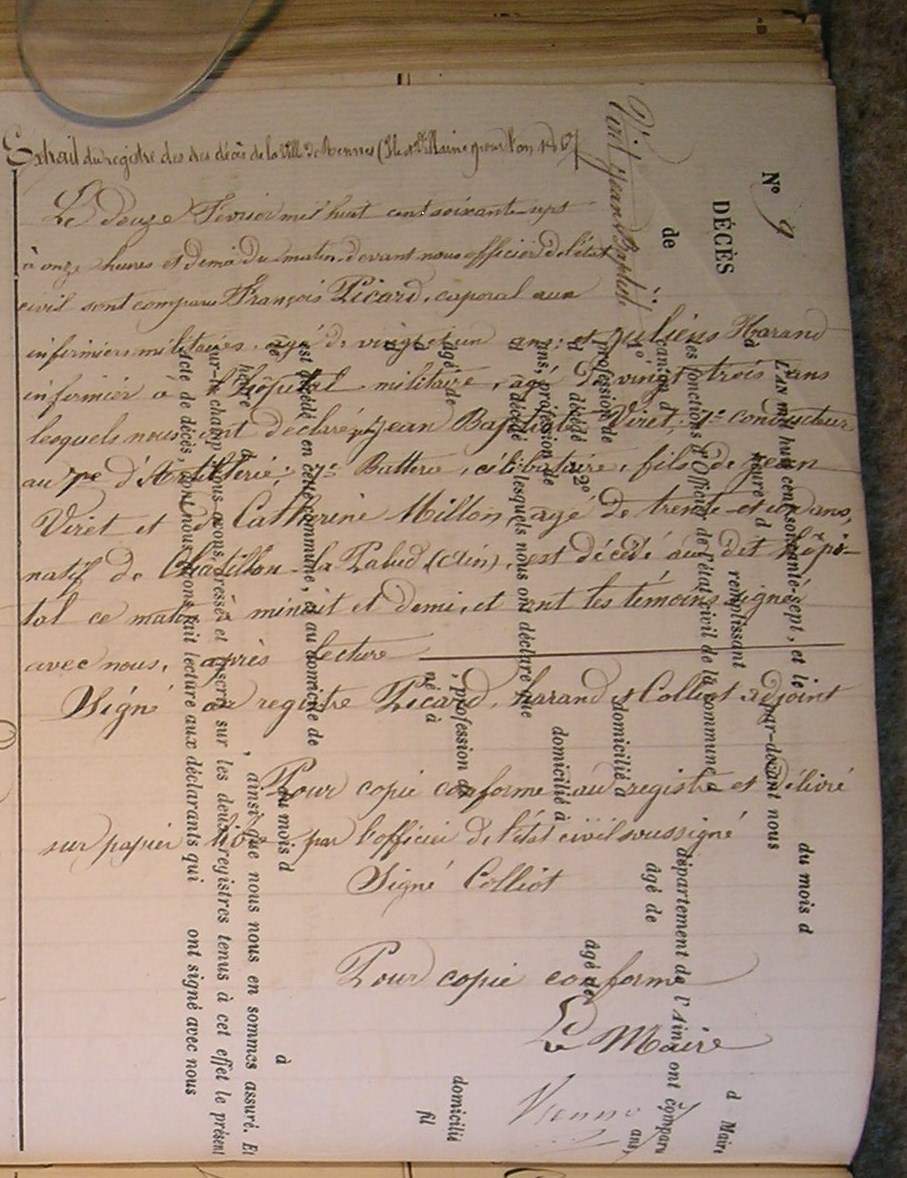 Extrait du registre des des décès de la Ville de Rennes (Ile et Villaine) pour l'an 1867
Le douze Février mil huit cent soixante sept
à onze heures et demi du matin, devant nous officier de l'état
civil sont comparu François Picard, caporal aux
infirmiers militaires, agé de vingt et un ans, et Juliens Harand
infirmier à l'hôpital militaire, agé de vingt trois ans
lesquels nous ont declaré que Jean Baptiste Viret, conducteur
au 7e d'Artillerie, Batterie, célibataire, fils de Jean
Viret et de Catherine Millon, agé de trente et un ans,
natif de Chatillon la Palud (Ain), est décédé au dit hôpi-
tal ce matin à minuit et demi, et ont les témoins signés
avec nous, après lecture
Signé au registre Picard, Harand et Colliot adjoint
Pour copie conforme au registre et délivré
sur papier libre par l'officier de l'état civil soussigné
Signé Colliot
Pour copie conforme
Le Maire
N° 9
DÉCÈS
de
Viret Jean Baptiste
L'an mil huit cent soixante-sept, et le du mois d
à heure d par-devant nous
remplissant d Maire
les fonctions d'Officier de l'état civil de la commune
canton d département de l'Ain, ont comparu
1° âgé de ans,
profession de domicilié à
d décédé 2° âgé de
ans, profession de domicilié à
d décédé lesquels nous ont déclaré que
âgé de , profession de domicilié
né à fil
de
est décédé en cette commune, au domicile de
le du mois d à
heure d , ainsi que nous nous en sommes assuré. Et
sur-le-champ nous avons dressé et inscrit sur les deux registres tenus à cet effet le présent
acte de décès, dont nous avons fait lecture aux déclarants qui ont signé avec nous